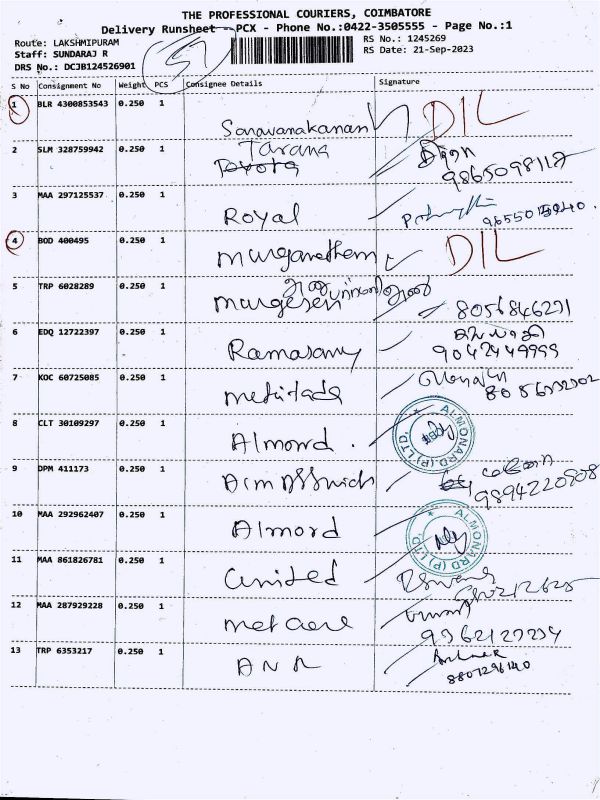 THE PROFESSIONAL COURIERS, COIMBATORE
Delivery Runsheet - PCX - Phone No.:0422-3505555 - Page No.:1
Route: LAKSHMIPURAM
RS No.: 1245269
Staff: SUNDARAJ R
RS Date: 21-Sep-2023
DRS No.: DCJB124526901
S No Consignment No Weight PCS Consignee Details Signature
1 BLR 4300853543 0.250 1 Saravanakanan DIL
2 SLM 328759942 0.250 1 Tarana Toyota 9865098117
3 MAA 297125537 0.250 1 Royal
4 BOD 400495 0.250 1 DIL
5 TRP 6028289 0.250 1 Murgesen 8056846271
6 EDQ 12722397 0.250 1 Ramasamy 9042449999
7 KOC 60725085 0.250 1
8 CLT 30109297 0.250 1 Almond. ALMONARD (P) LTD.
9 DPM 411173 0.250 1 9894220808
10 MAA 292962407 0.250 1 Almord ALMONARD (P) LTD.
11 MAA 861826781 0.250 1 United
12 MAA 287929228 0.250 1
13 TRP 6353217 0.250 1 ANR 8807296140